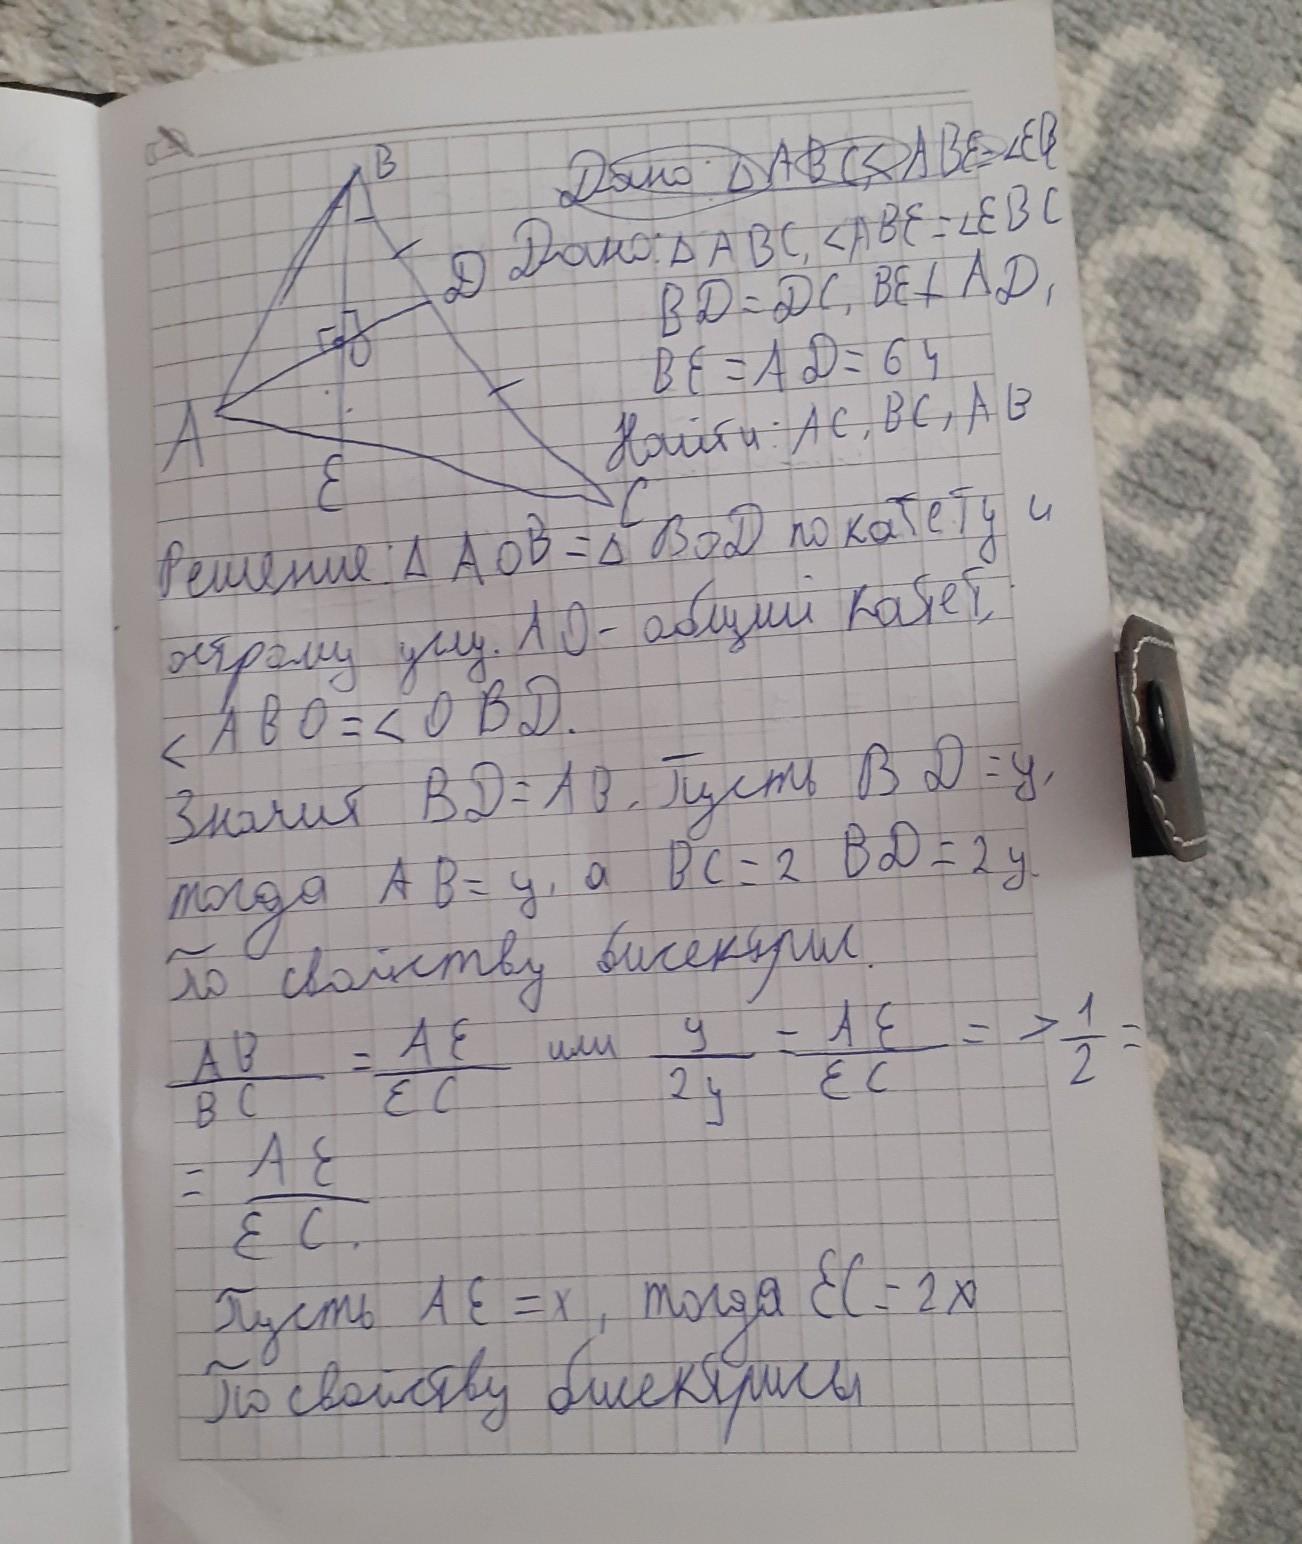 B
Дано: △ABC, <ABE=<EB
D
Дано: △ABC, <ABE=<EBC
BD=DC, BE⊥AD,
BE=AD=64
A
O
Найти: AC, BC, AB
E
C
Решение: △AOB=△BOD по катету и
острому углу. AO- общий катет,
<ABO=<OBD.
Значит BD=AB. Пусть BD=y,
тогда AB=y, а BC=2 BD=2y.
По свойству бисектрис.
AB/BC = AE/EC или y/2y = AE/EC => 1/2 =
= AE/EC.
Пусть AE=x, тогда EC=2x
По свойству бисектрисы